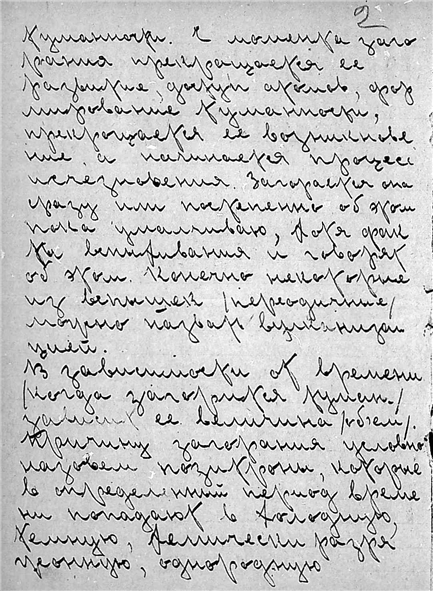 2
туманности. С момента заго
рания прекращается ее
развитие, доступ атомов, фор
мирование туманности,
прекращается ее возникнове
ние, а начинается процесс
исчезновения. Загорается она
сразу или постепенно об этом
пока умалчиваю, хотя фак
ты вспыхивания и говорят
об этом. Конечно некоторые
из вспышек /переодичные/
можно назвать вулканиза
цией.
В зависимости от времени
/когда загорится туман./
зависит ее величина /объем/.
Причину загорания условно
назовем позитроны, которые
в определенный период време
ни попадают в холодную,
темную, химически разре
женную, однородную